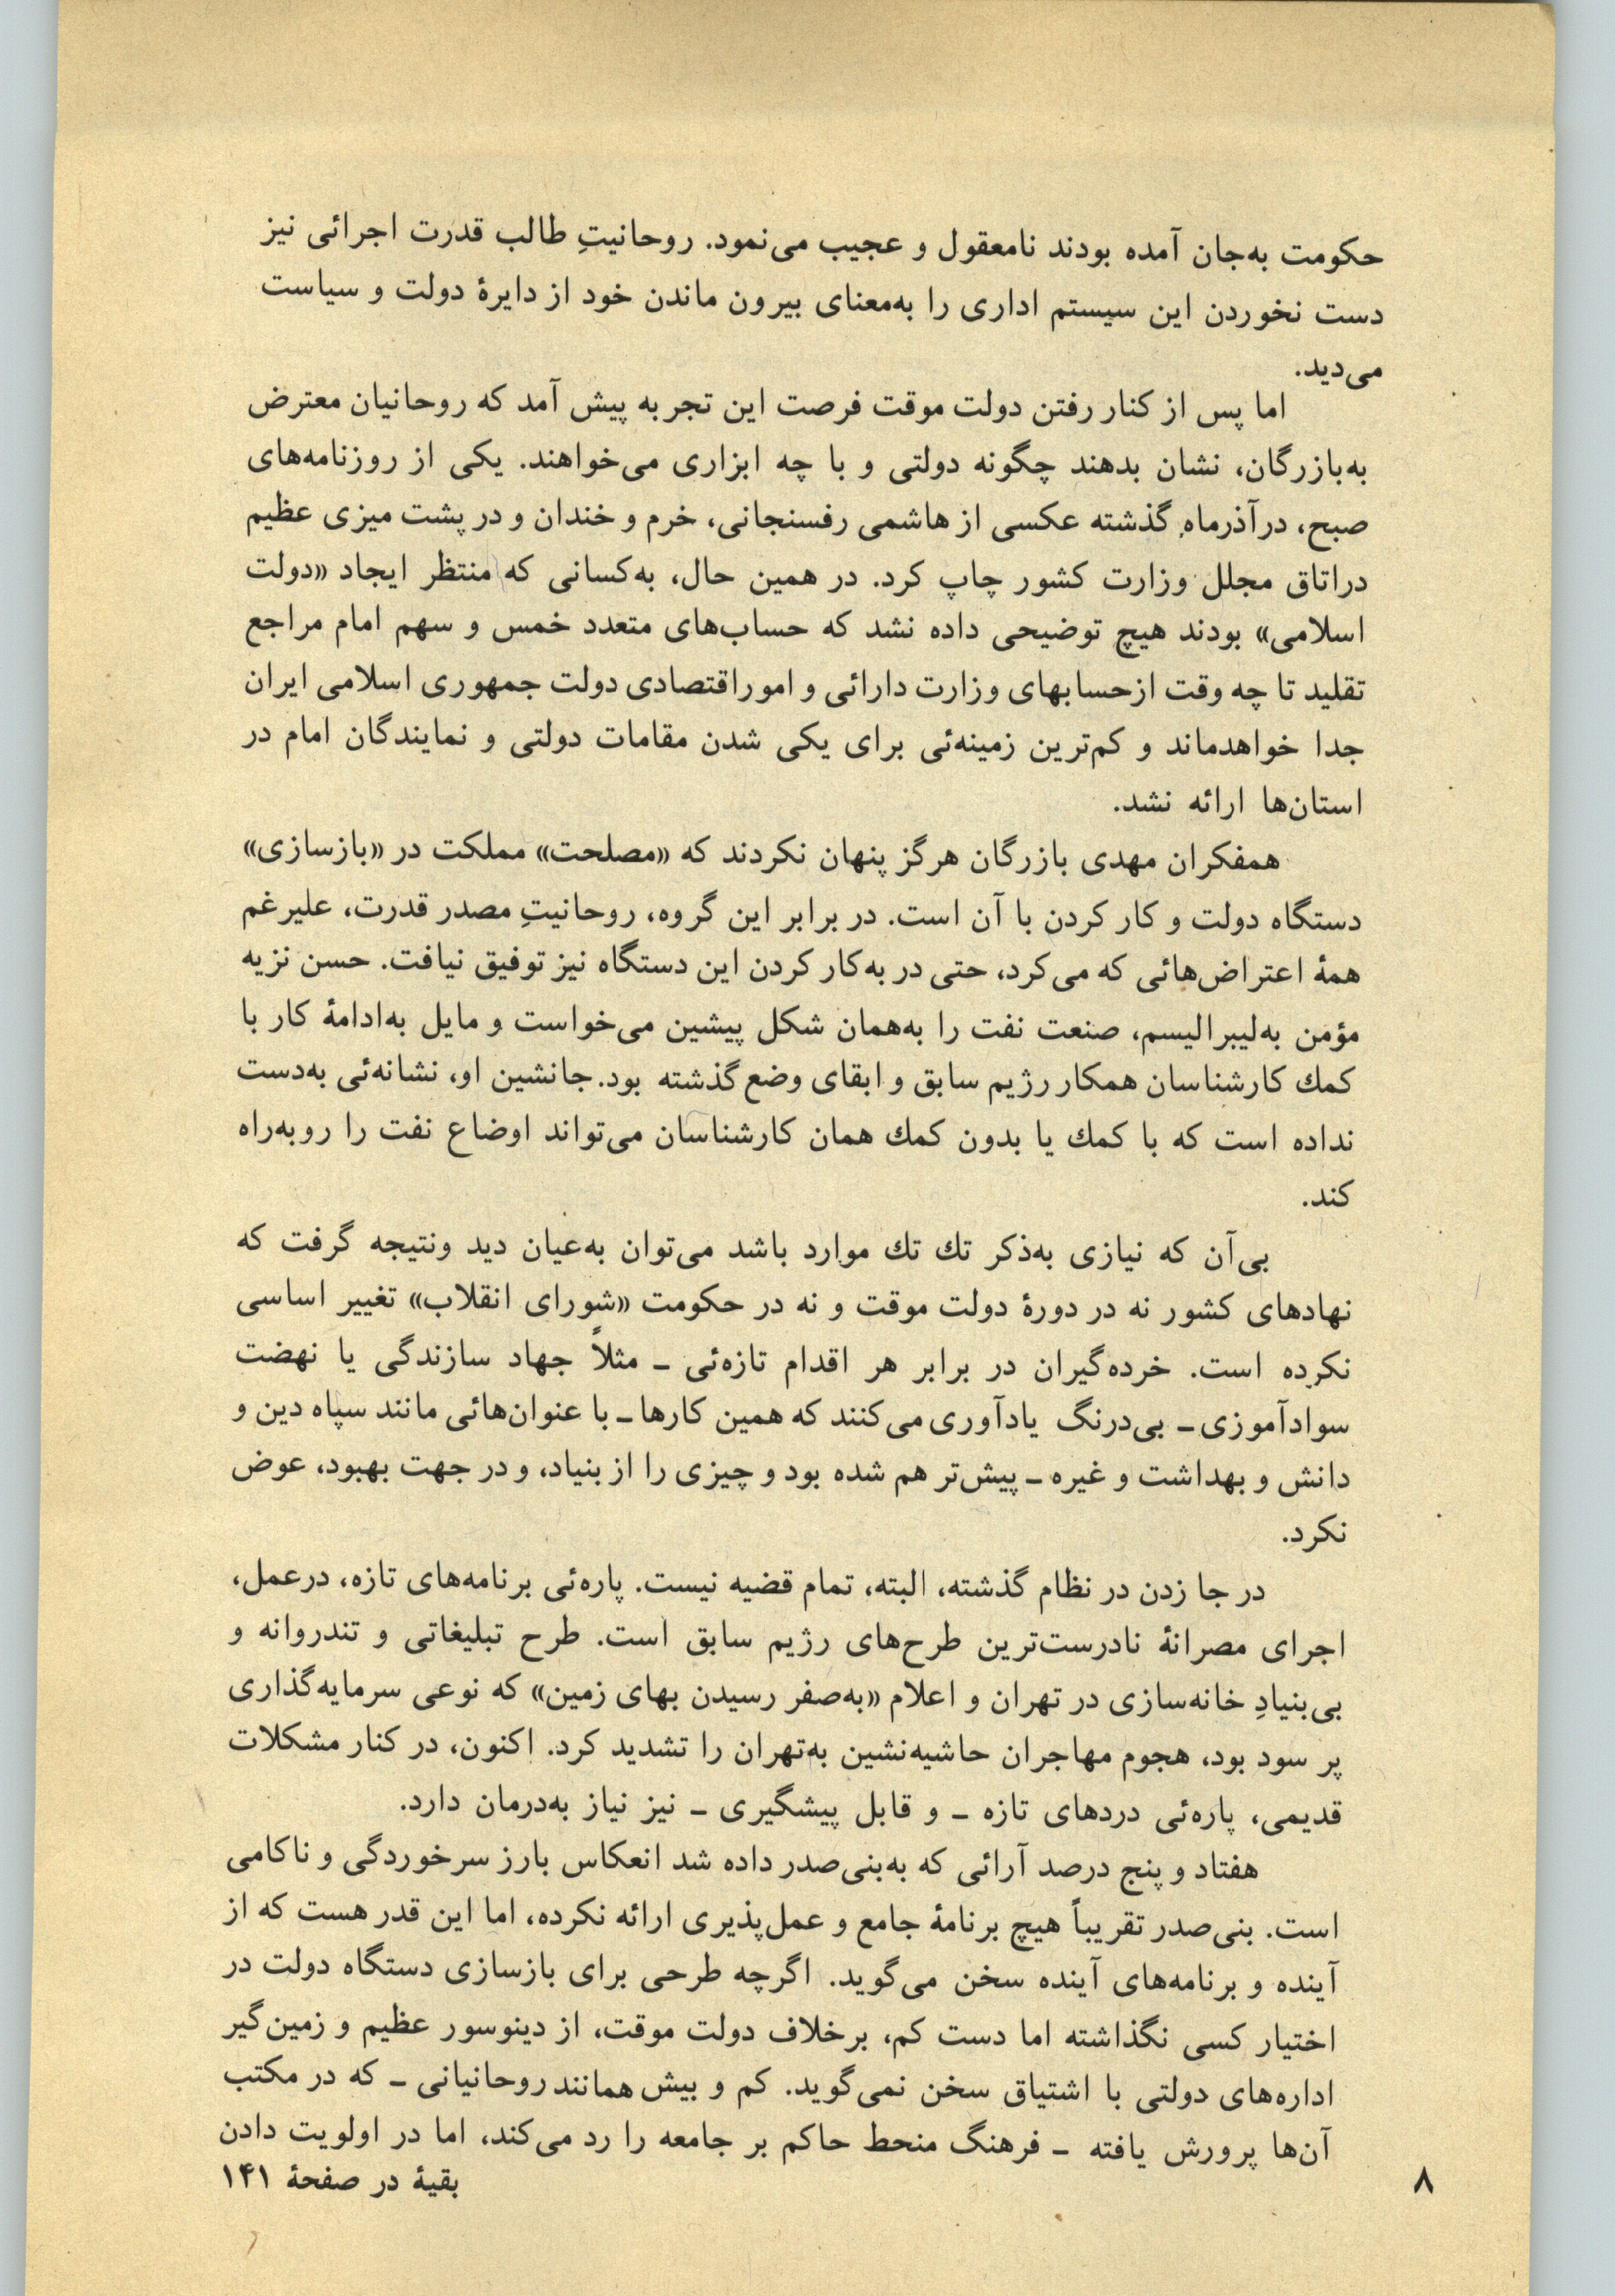 حکومت به‌جان آمده بودند نامعقول و عجیب می‌نمود. روحانیتِ طالب قدرت اجرائی نیز
دست نخوردن این سیستم اداری را به‌معنای بیرون ماندن خود از دایرهٔ دولت و سیاست
می‌دید.
اما پس از کنار رفتن دولت موقت فرصت این تجربه پیش آمد که روحانیان معترض
به‌بازرگان، نشان بدهند چگونه دولتی و با چه ابزاری می‌خواهند. یکی از روزنامه‌های
صبح، درآذرماهِ گذشته عکسی از هاشمی رفسنجانی، خرم و خندان و در پشت میزی عظیم
دراتاق مجلل وزارت کشور چاپ کرد. در همین حال، به‌کسانی که منتظر ایجاد «دولت
اسلامی» بودند هیچ توضیحی داده نشد که حساب‌های متعدد خمس و سهم امام مراجع
تقلید تا چه وقت ازحسابهای وزارت دارائی و اموراقتصادی دولت جمهوری اسلامی ایران
جدا خواهدماند و کم‌ترین زمینه‌ئی برای یکی شدن مقامات دولتی و نمایندگان امام در
استان‌ها ارائه نشد.
همفکران مهدی بازرگان هرگز پنهان نکردند که «مصلحت» مملکت در «بازسازی»
دستگاه دولت و کار کردن با آن است. در برابر این گروه، روحانیتِ مصدر قدرت، علیرغم
همهٔ اعتراض‌هائی که می‌کرد، حتی در به‌کار کردن این دستگاه نیز توفیق نیافت. حسن نزیه
مؤمن به‌لیبرالیسم، صنعت نفت را به‌همان شکل پیشین می‌خواست و مایل به‌ادامهٔ کار با
کمك کارشناسان همکار رژیم سابق و ابقای وضع گذشته بود. جانشین او، نشانه‌ئی به‌دست
نداده است که با کمك یا بدون کمك همان کارشناسان می‌تواند اوضاع نفت را روبه‌راه
کند.
بی‌آن که نیازی به‌ذکر تك تك موارد باشد می‌توان به‌عیان دید ونتیجه گرفت که
نهادهای کشور نه در دورهٔ دولت موقت و نه در حکومت «شورای انقلاب» تغییر اساسی
نکرده است. خرده‌گیران در برابر هر اقدام تازه‌ئی ـ مثلاً جهاد سازندگی یا نهضت
سوادآموزی ـ بی‌درنگ یادآوری می‌کنند که همین کارها ـ با عنوان‌هائی مانند سپاه دین و
دانش و بهداشت و غیره ـ پیش‌تر هم شده بود و چیزی را از بنیاد، و در جهت بهبود، عوض
نکرد.
در جا زدن در نظام گذشته، البته، تمام قضیه نیست. پاره‌ئی برنامه‌های تازه، درعمل،
اجرای مصرانهٔ نادرست‌ترین طرح‌های رژیم سابق است. طرح تبلیغاتی و تندروانه و
بی‌بنیادِ خانه‌سازی در تهران و اعلام «به‌صفر رسیدن بهای زمین» که نوعی سرمایه‌گذاری
پر سود بود، هجوم مهاجران حاشیه‌نشین به‌تهران را تشدید کرد. اکنون، در کنار مشکلات
قدیمی، پاره‌ئی دردهای تازه ـ و قابل پیشگیری ـ نیز نیاز به‌درمان دارد.
هفتاد و پنج درصد آرائی که به‌بنی‌صدر داده شد انعکاس بارز سرخوردگی و ناکامی
است. بنی‌صدر تقریباً هیچ برنامهٔ جامع و عمل‌پذیری ارائه نکرده، اما این قدر هست که از
آینده و برنامه‌های آینده سخن می‌گوید. اگرچه طرحی برای بازسازی دستگاه دولت در
اختیار کسی نگذاشته اما دست کم، برخلاف دولت موقت، از دینوسور عظیم و زمین‌گیر
اداره‌های دولتی با اشتیاق سخن نمی‌گوید. کم و بیش همانند روحانیانی ـ که در مکتب
آن‌ها پرورش یافته ـ فرهنگ منحط حاکم بر جامعه را رد می‌کند، اما در اولویت دادن
بقیهٔ در صفحهٔ ۱۴۱
۸